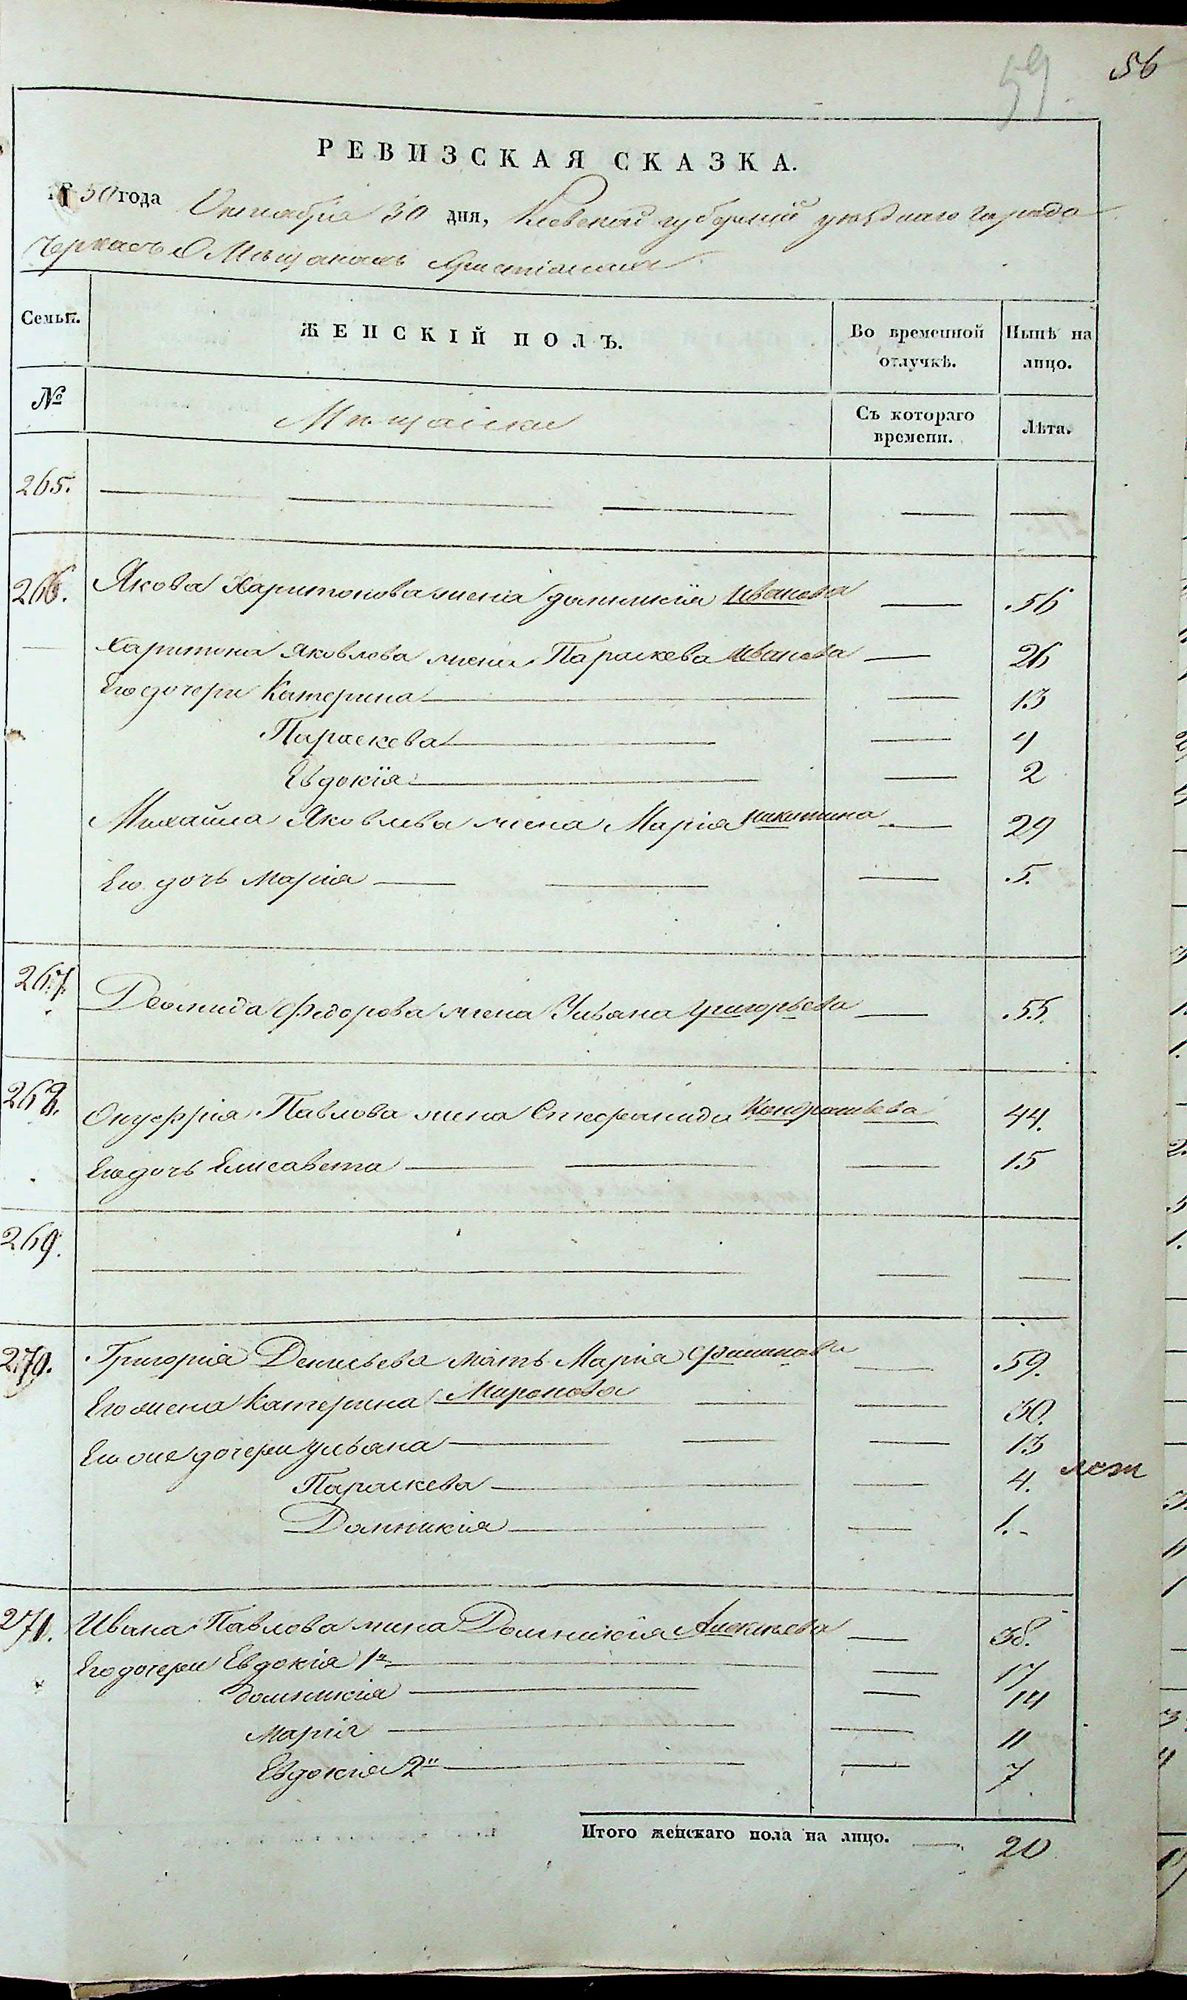 59
56
РЕВИЗСКАЯ СКАЗКА.
1850 года Октября 30 дня, Киевской губерніи уезднаго города
Черкасъ О Мещанахъ Христіанахъ
Семьи.
ЖЕНСКІЙ ПОЛЪ.
Во временной отлучкѣ.
Нынѣ на лицо.
№
Мещанки
Съ котораго времени.
Лѣта.
265. — — — — —
266. Якова Харитонова жена Домникія Иванова — 56
Харитона Яковлева жена Параскева Иванова — 26
Его дочери Катерина — — 13
Параскева — — 4
Евдокія — — 2
Михайла Яковлева жена Марія Никитина — 29
Его дочь Марія — — — 5.
267. Деомида Федорова жена Ульяна Григорьева — 55.
268. Онуфрія Павлова жена Стефанида Кондратьева — 44.
Его дочь Елисавета — — — 15
269. — — —
270. Григорія Денисьева мать Марія Филипова — 59.
Его жена Катерина Миронова — — 30.
Его же дочери Ульяна — — — 13
Параскева — — 4.
Домникія — — 1.
271. Ивана Павлова жена Домникія Алексеева — 38.
Его дочери Евдокія 1я — — 17
Домникія — — 14
Марія — — 11
Евдокія 2я — — 7
Итого женскаго пола на лицо. — 20